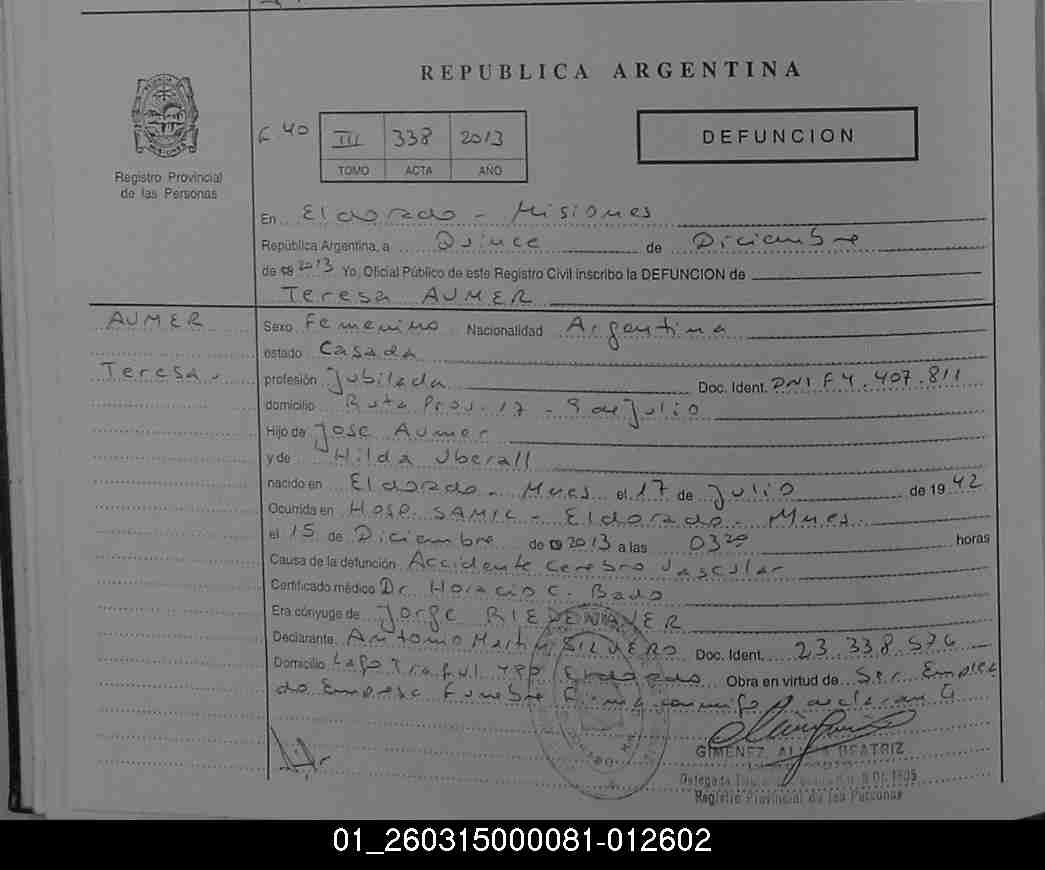 REPUBLICA ARGENTINA
Registro Provincial
de las Personas
F 40
III 338 2013
TOMO ACTA AÑO
DEFUNCION
En Eldorado - Misiones
República Argentina, a Quince de Diciembre
de 2013 Yo, Oficial Público de este Registro Civil inscribo la DEFUNCION de
Teresa AUMER
AUMER
Teresa.-
Sexo Femenino Nacionalidad Argentina
estado Casada
profesión Jubilada Doc. Ident. DNI F 4.407.811
domicilio Ruta Prov. 17 - 9 de Julio
Hijo de José Aumer
y de Hilda Uberall
nacido en Eldorado - Mnes el 17 de Julio de 1942
Ocurrida en Hosp. SAMIC - Eldorado - Mnes.
el 15 de Diciembre de 2013 a las 03 20 horas
Causa de la defunción Accidente Cerebro Vascular
Certificado médico Dr. Horacio C. Bado
Era cónyuge de Jorge RIEDENAUER
Declarante Antonio Martin SILVERO Doc. Ident. 23.338.576
Domicilio Lago Traful Eldorado Obra en virtud de Ser Emplea
do Empresa Funebre Firma conmigo
GIMENEZ, BEATRIZ
Delegada
Registro Provincial de las Personas
01_260315000081-012602